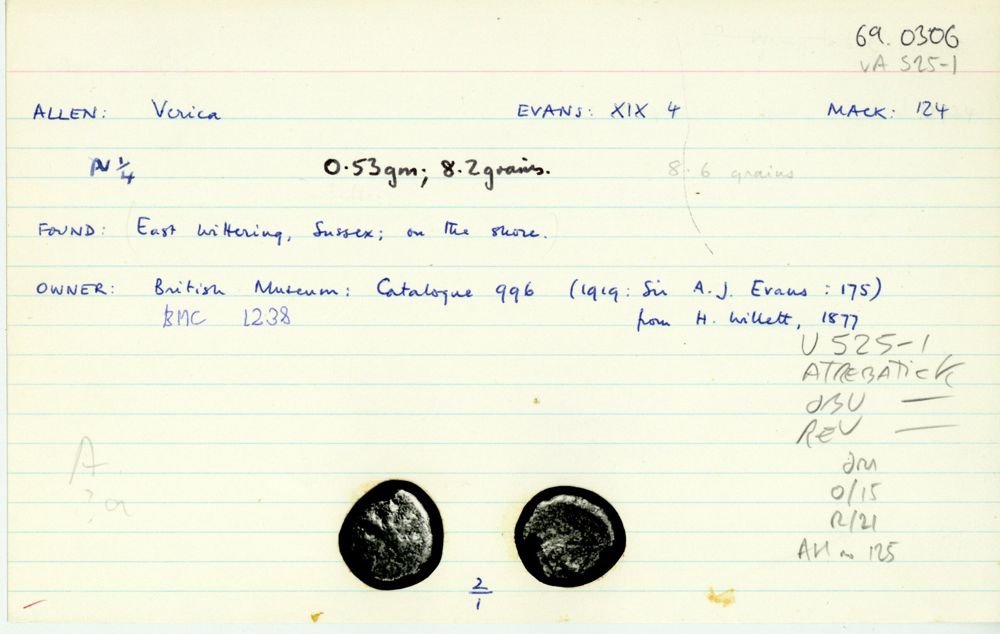 69. 0306
VA 525-1
ALLEN: Verica EVANS: XIX 4 MACK: 124
N 1/4 0.53gm; 8.2 grains. 8.6 grains
FOUND: East Wittering, Sussex; on the shore.
OWNER: British Museum: Catalogue 996 (1919: Sir A.J. Evans: 175)
BMC 1238 from H. Willett, 1877
V 525-1
ATREBATIC K
OBV —
REV —
O/15
R/21
125
A
?a
2/1